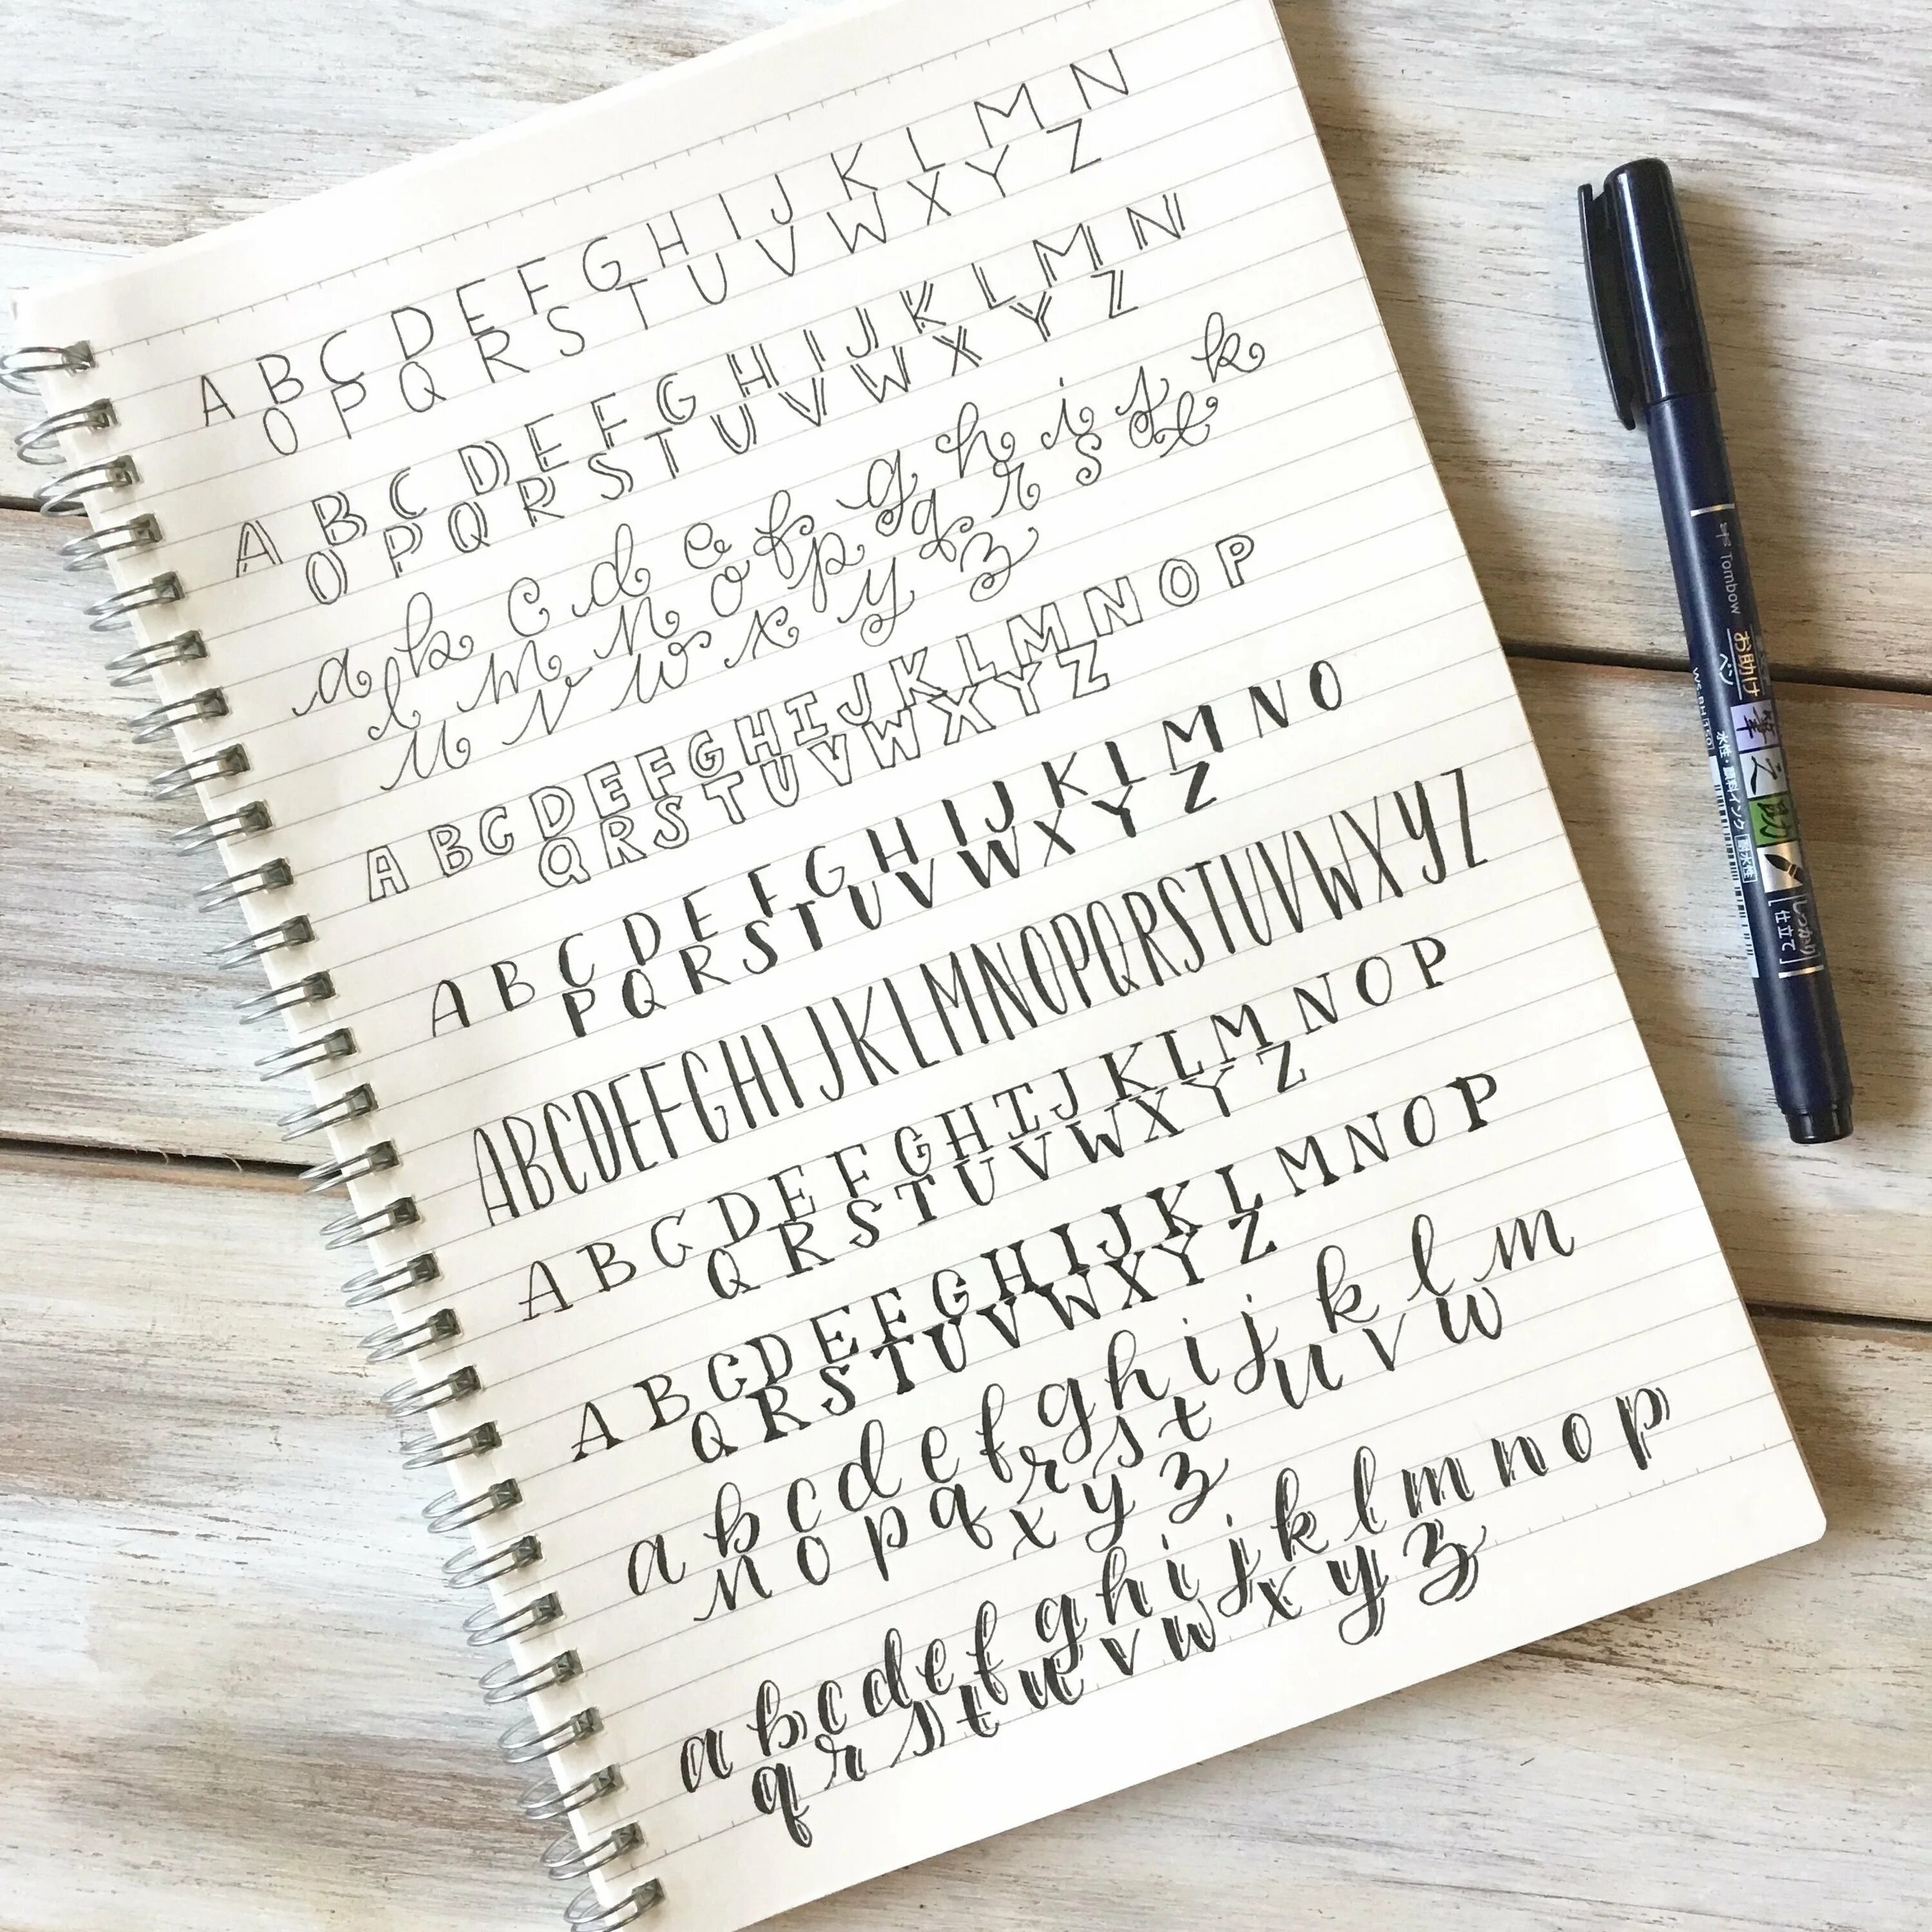 A B C D E F G H I J K L M N
O P Q R S T U V W X Y Z
A B C D E F G H I J K L M N
O P Q R S T U V W X Y Z
a b c d e f g h i j k
l m n o p q r s t
u v w x y z
A B C D E F G H I J K L M N O P
Q R S T U V W X Y Z
A B C D E F G H I J K L M N O
P Q R S T U V W X Y Z
ABCDEFGHIJKLMNOPQRSTUVWXYZ
A B C D E F G H I J K L M N O P
Q R S T U V W X Y Z
A B C D E F G H I J K L M N O P
Q R S T U V W X Y Z
a b c d e f g h i j k l m
n o p q r s t u v w
x y z
a b c d e f g h i j k l m n o p
q r s t u v w x y z
Tombow
お助け
ペン
筆之助
水性・顔料インク
しっかり
仕立て